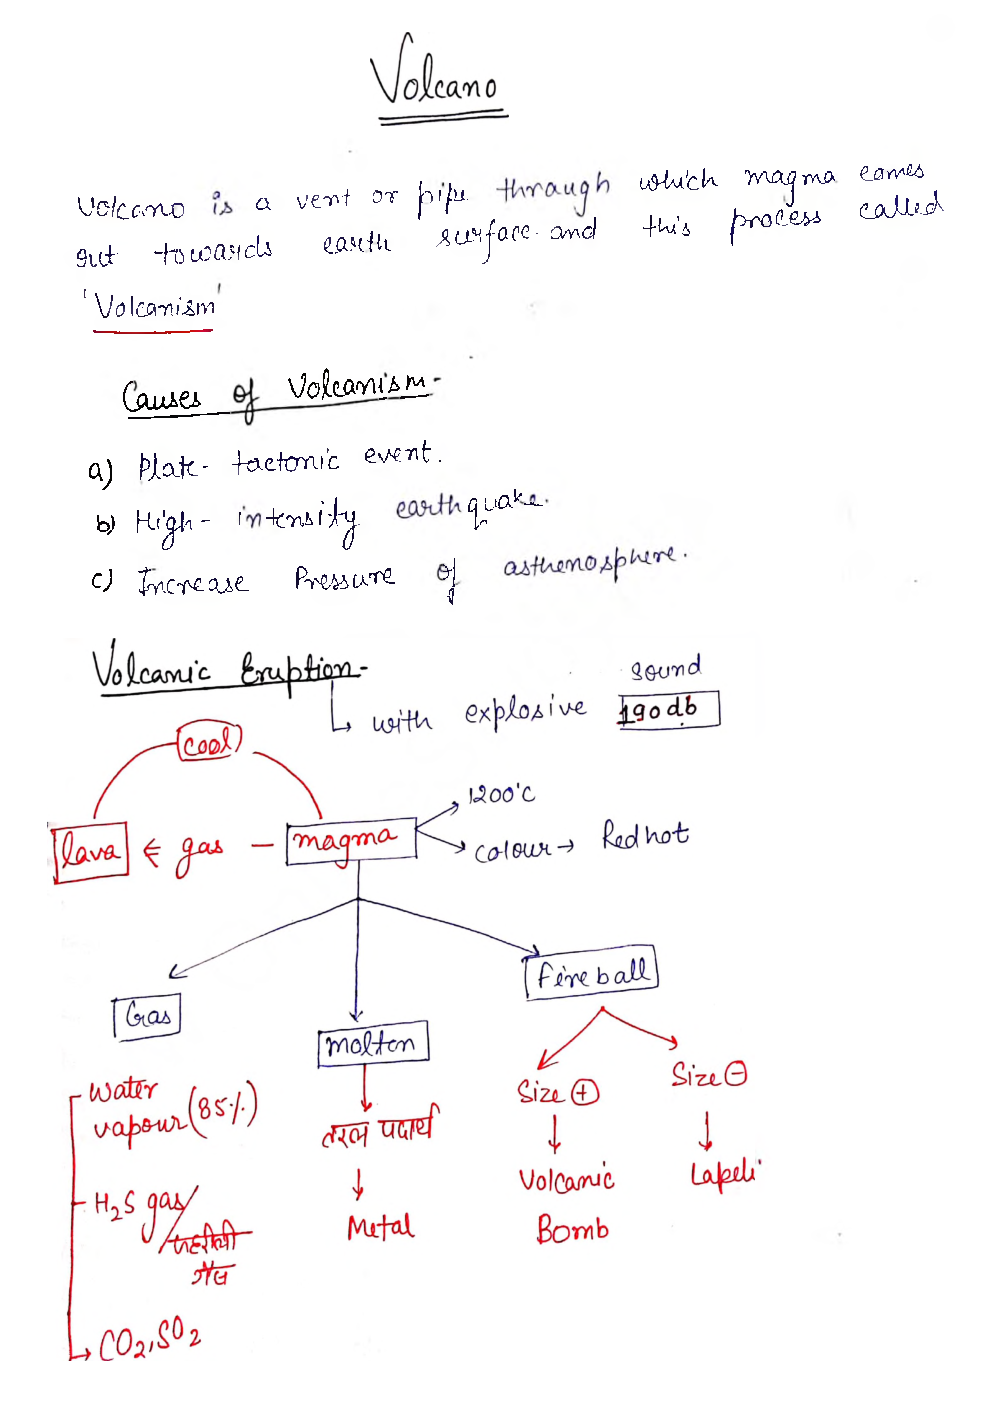 Volcano
Volcano is a vent or pipe through which magma comes
out towards earth surface and this process called
'Volcanism'
Causes of Volcanism-
a) Plate- tactonic event.
b) High- intensity earthquake.
c) Increase Pressure of asthenosphere.
Volcanic Eruption-
sound
with explosive 190db
cool
1200°C
lava ← gas - magma
colour → Red hot
Fireball
Gas
molten
Size ⊕
Size ⊖
Water
vapour (85%)
तरल पदार्थ
Volcanic
Bomb
Lapeli
H2S gas/
गैस
Metal
CO2, SO2